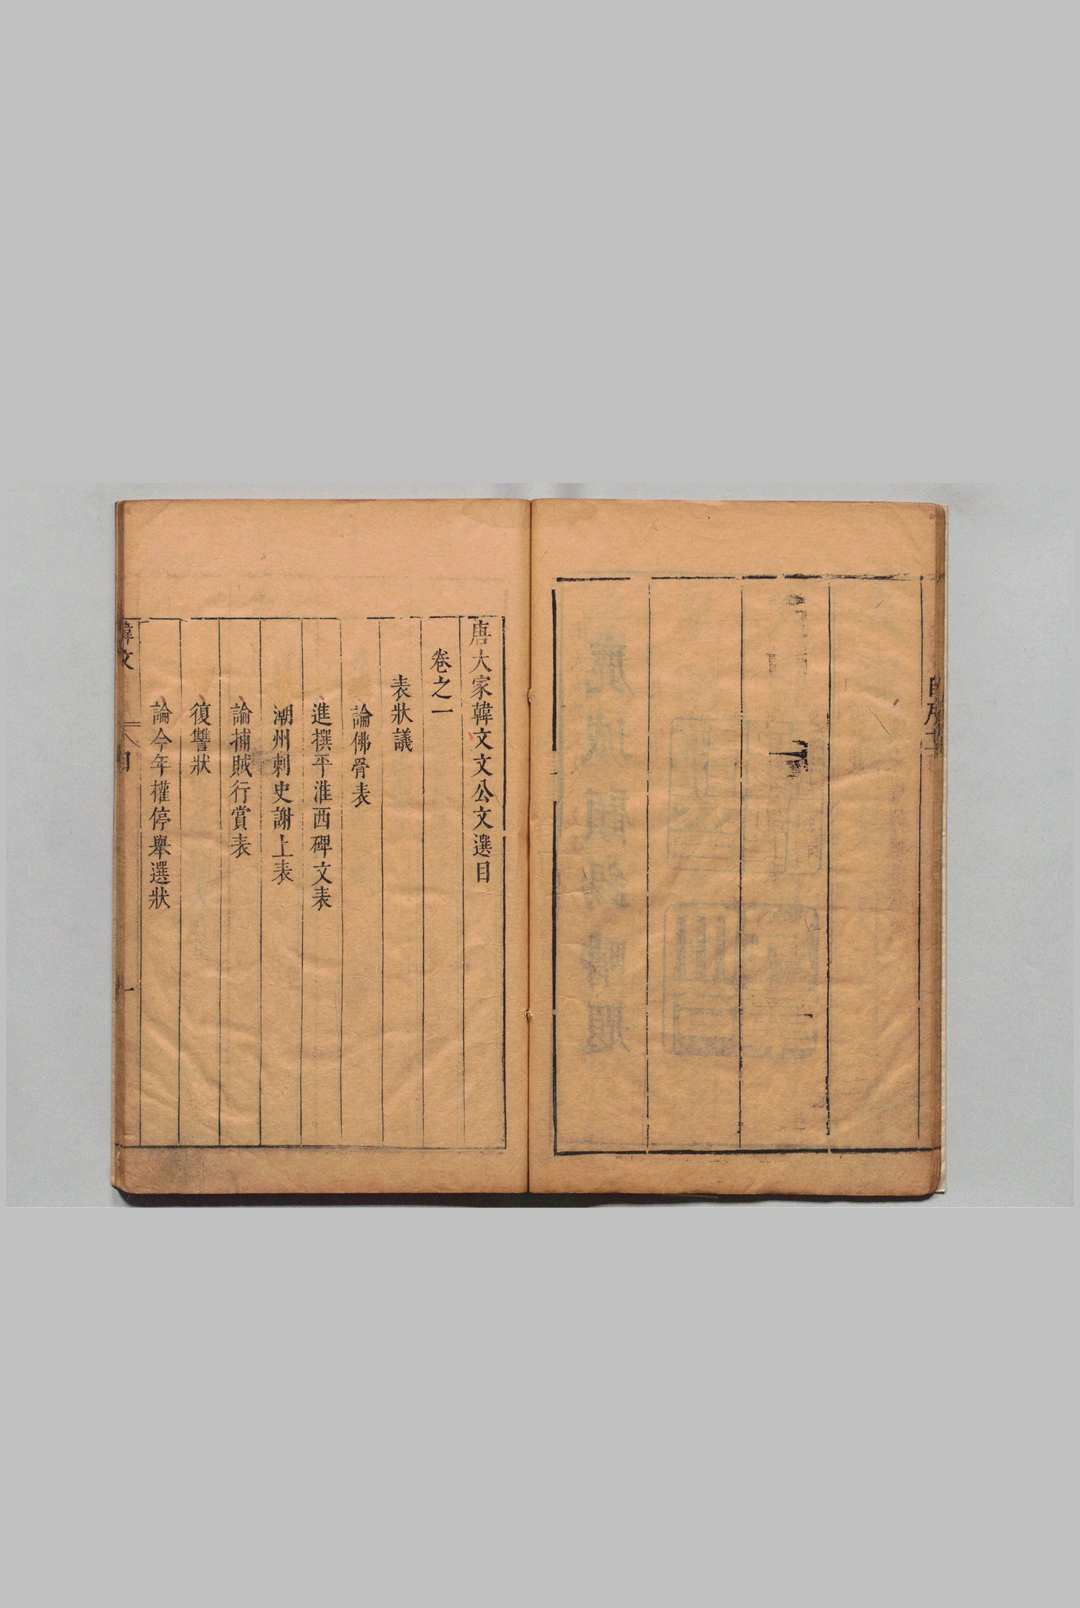 唐大家韓文文公文選目
卷之一
表狀議
論佛骨表
進撰平淮西碑文表
潮州刺史謝上表
論捕賊行賞表
復讐狀
論今年權停舉選狀
韓文
目
一